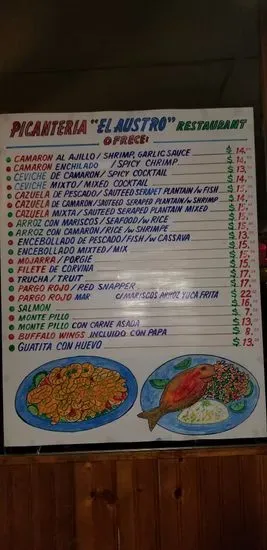 PICANTERIA "EL AUSTRO" RESTAURANT
OFRECE:
CAMARON AL AJILLO / SHRIMP, GARLIC SAUCE $ 14.
CAMARON ENCHILADO / SPICY SHRIMP $ 14.
CEVICHE DE CAMARON / SPICY COCKTAIL $ 13.
CEVICHE MIXTO / MIXED COCKTAIL $ 14.
CAZUELA DE PESCADO / SAUTEED SERAPET PLANTAIN w/FISH $ 15.
CAZUELA DE CAMARON / SAUTEED SERAPED PLANTAIN w/SHRIMP $
CAZUELA MIXTA / SAUTEED SERAPED PLANTAIN MIXED $ 15.
ARROZ CON MARISCOS / SEAFOOD/w RICE $ 15.
ARROZ CON CAMARON / RICE /w SHRIMPE $
ENCEBOLLADO DE PESCADO / FISH /w CASSAVA $ 13.
ENCEBOLLADO MIXTED / MIX $ 15.
MOJARRA / PORGIE $ 15.
FILETE DE CORVINA $
TRUCHA / TRUIT $ 17.
PARGO ROJO / RED SNAPPER $ 17.
PARGO ROJO MAR C/MARISCOS ARROZ YUCA FRITA $ 22
SALMON $ 16.
MONTE PILLO $ 7.
MONTE PILLO CON CARNE ASADA $ 13.
BUFFALO WINGS INCLUIDO CON PAPA $ 8.
GUATITA CON HUEVO $ 13.